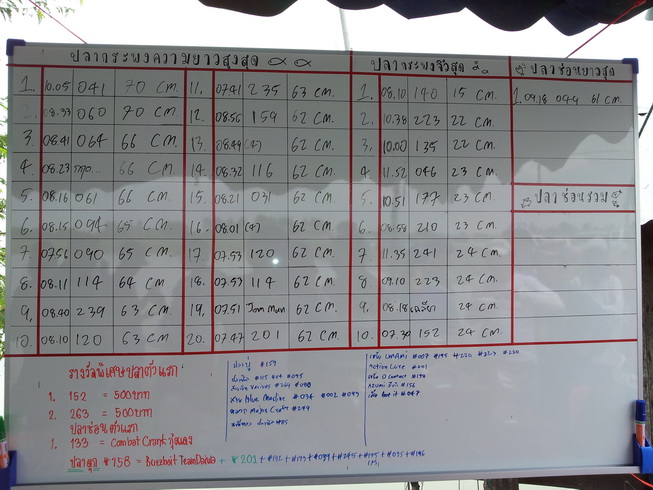 ปลากระพงความยาวสูงสุด
ปลากระพงจิ๋วสุด
ปลาช่อนยาวสุด
1. 10.05 041 70 CM.
08.33 060 70 CM
3. 08.41 064 66 CM
4. 08.23 66 CM
5. 08.16 061 66 CM
6. 08.15 094 65 CM.
7. 0756 090 65 CM.
8. 08.11 114 64 CM
9. 08.40 239 63 CM
10. 08.10 120 63 CM
11. 0741 235 63 CM.
12. 08.56 159 62 CM.
13. 08.44 62 CM.
14. 08.32 116 62 CM.
15. 08.21 031 62 CM.
16. 08.01 62 CM.
17. 07.53 120 62 CM.
18. 07.53 114 62 CM.
19. 07.51 Jom Mun 62 CM.
20. 07.47 201 62 CM.
1. 08.10 140 15 CM.
2. 10.38 223 22 CM.
3. 10.00 135 22 CM.
4. 11.52 046 23 CM.
5. 10.51 177 23 CM.
6. 08.58 210 23 CM.
7. 11.35 241 24 CM.
8. 09.10 223 24 CM.
9. 08.18 เฉลียว 24 CM.
10. 07.30 152 24 CM.
1. 09.18 044 61 CM.
ปลาช่อนรวม
รางวัลพิเศษปลาตัวแรก
1. 152 = 500บาท
2. 263 = 500บาท
ปลาช่อนตัวแรก
1. 133 = Combat Crank กุ้งแดง
ปลาดุก #158 = Buzzbait TeamDaiwa + #201 + #192 + #173 + #039 + #245 + #175 + #075 + #196
#159
Various #244 #080
สาย Blue Marline #034 #002 #093
Major Craft #244
#007 #195 #220 #223 #220
Action Lure #201
#156
#047